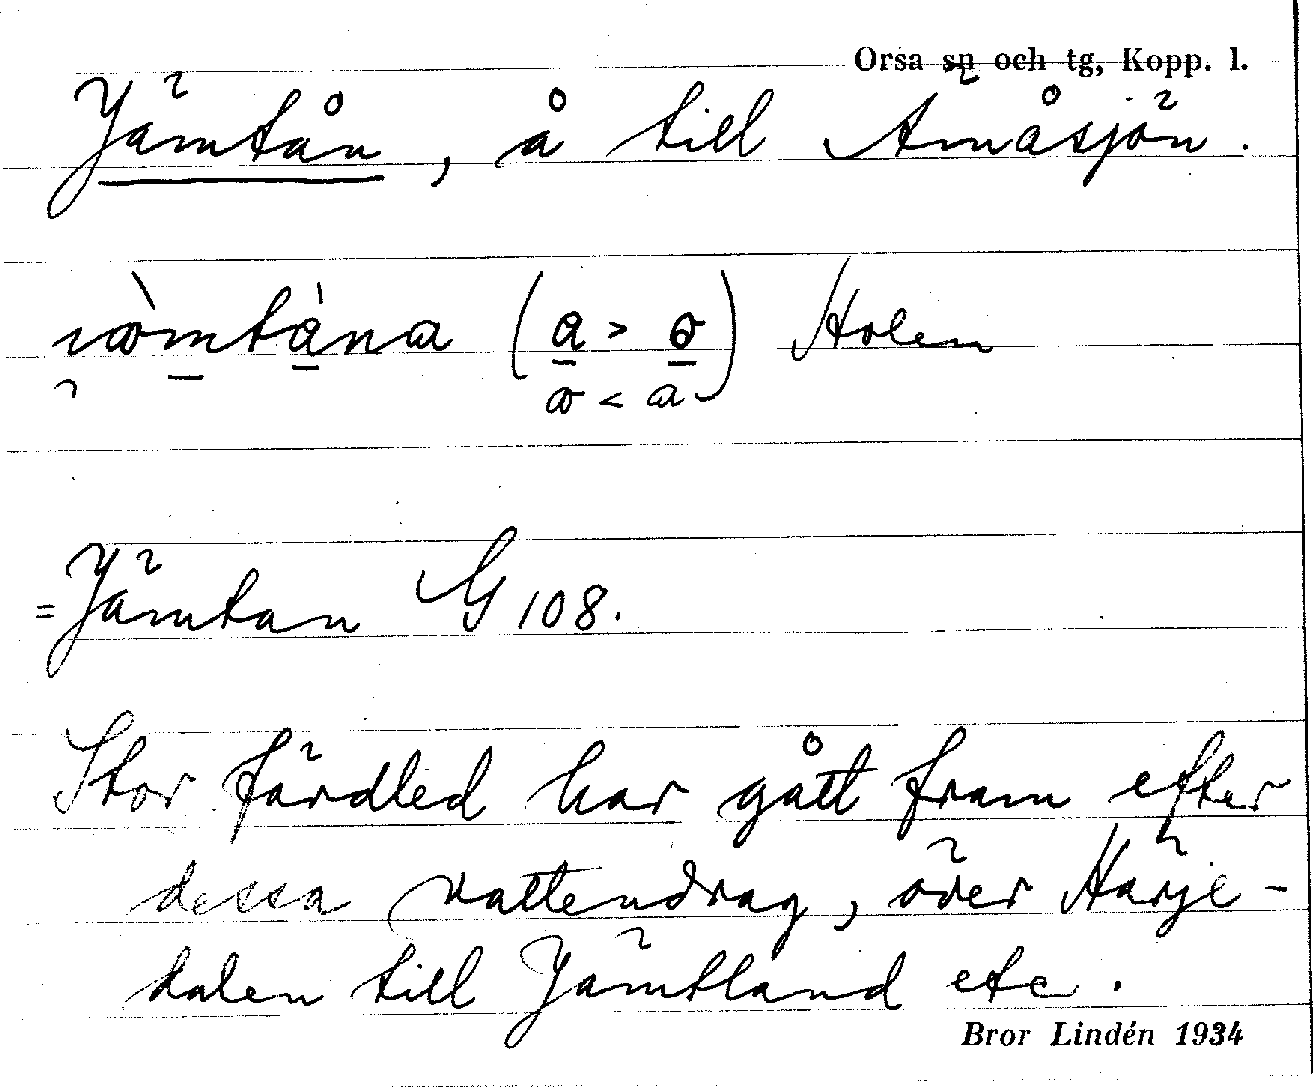 Orsa sn och tg, Kopp. l.
Jämtån, å till Ämåsjön.
Holen
= Jämtan G 108.
Stor färdled har gått fram efter
dessa vattendrag, över Härje-
dalen till Jämtland etc.
Bror Lindén 1934